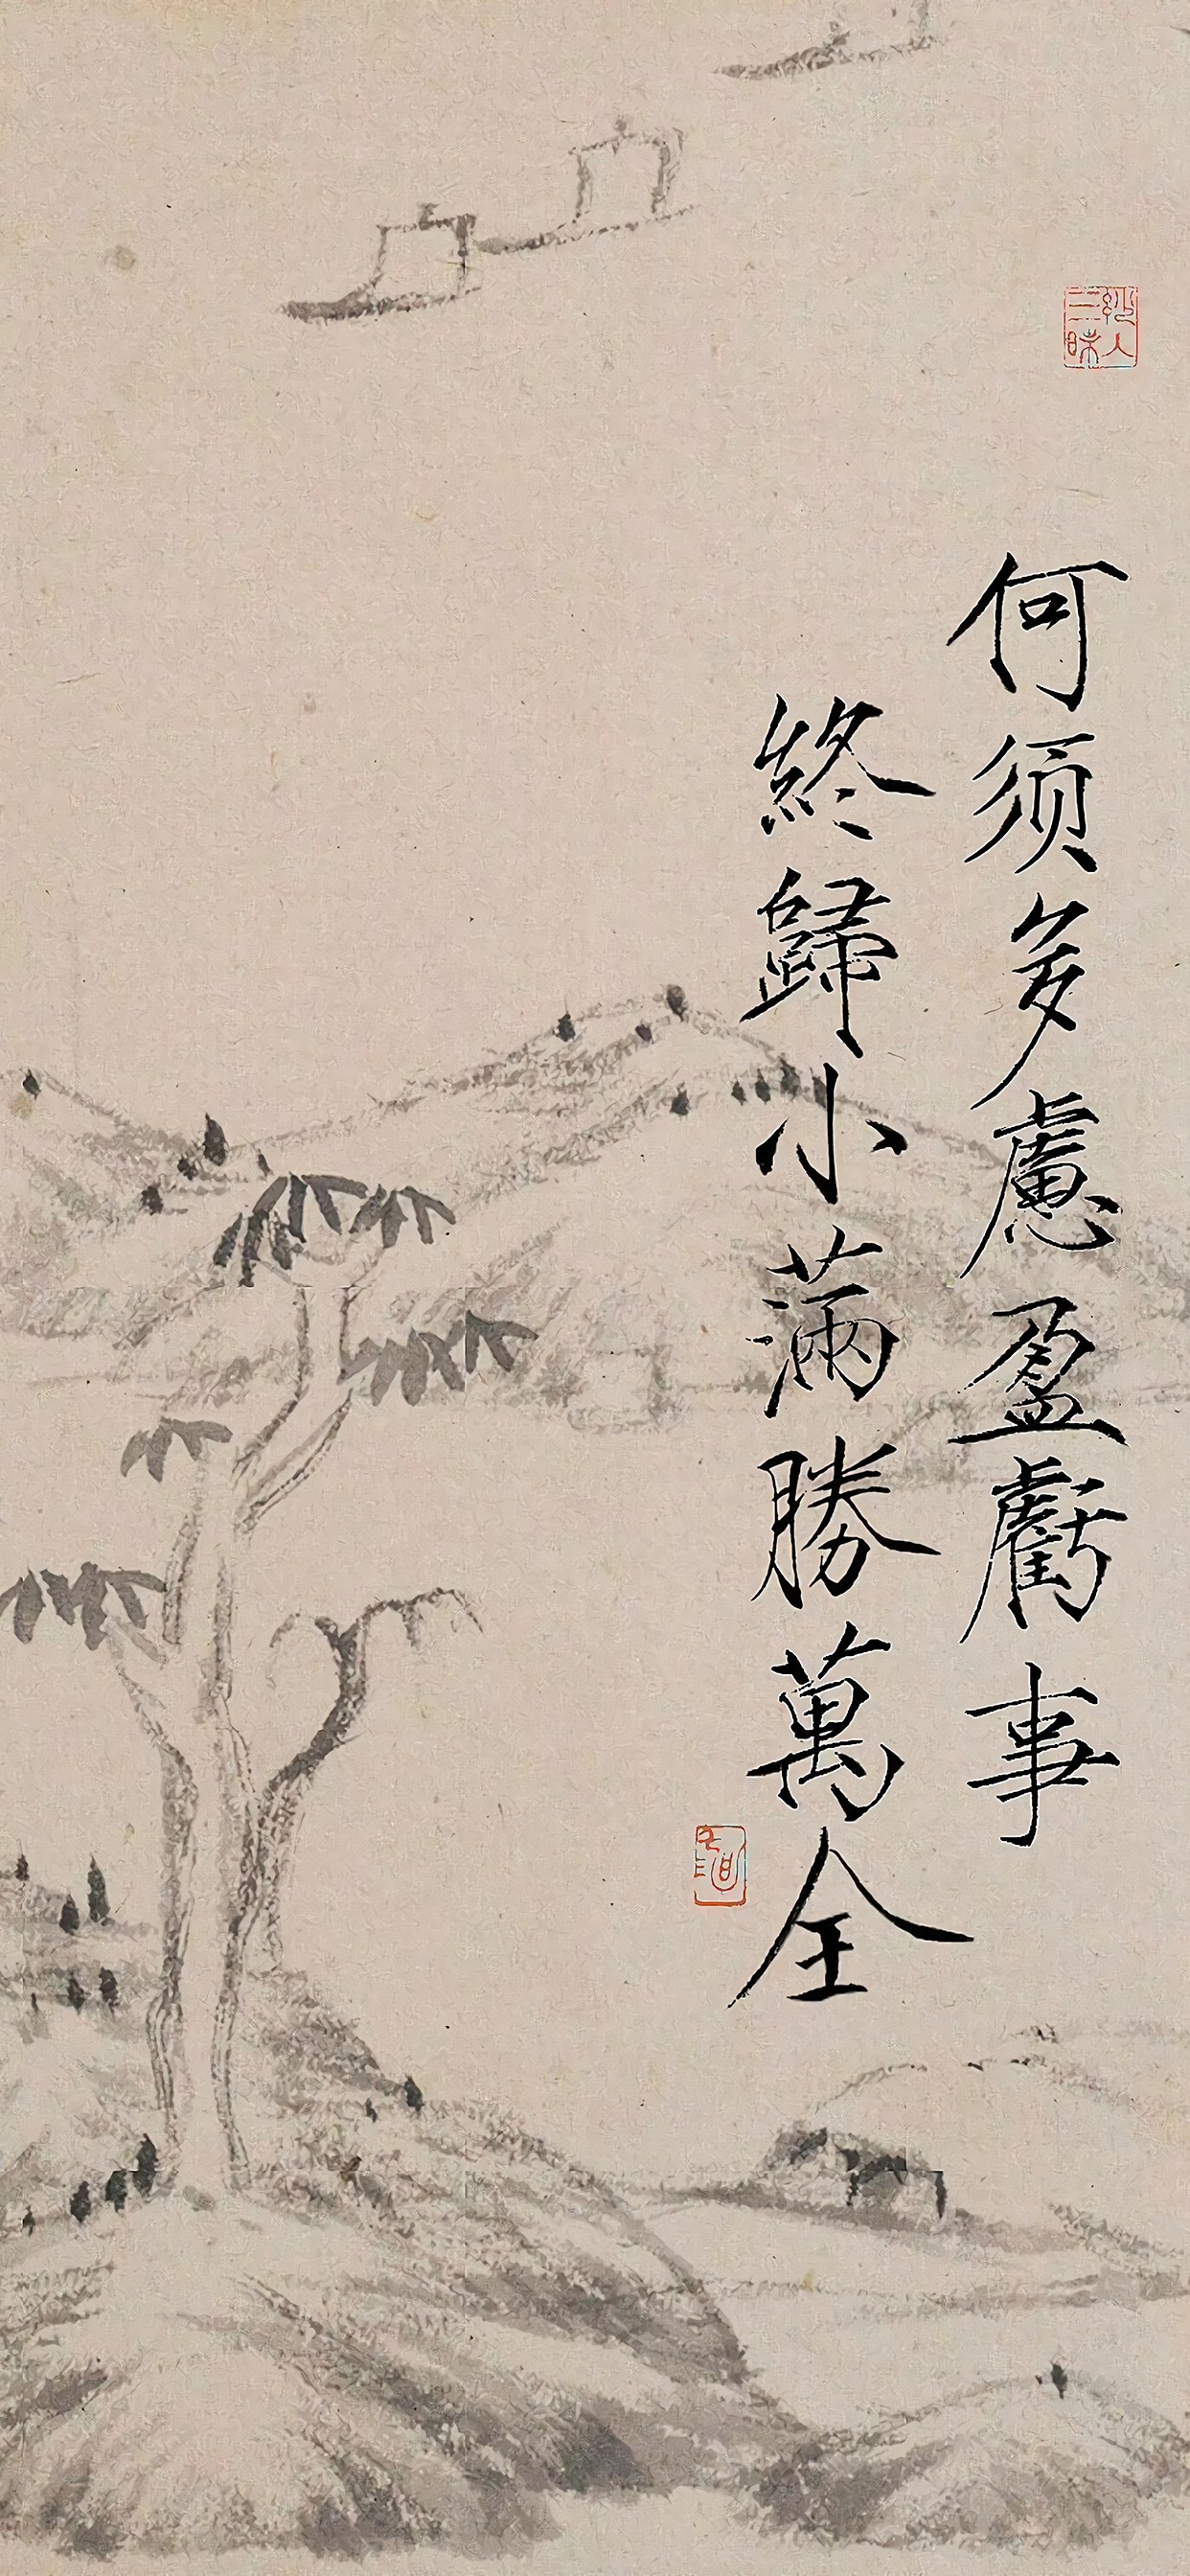 何须多慮盈虧事
終歸小满勝萬全